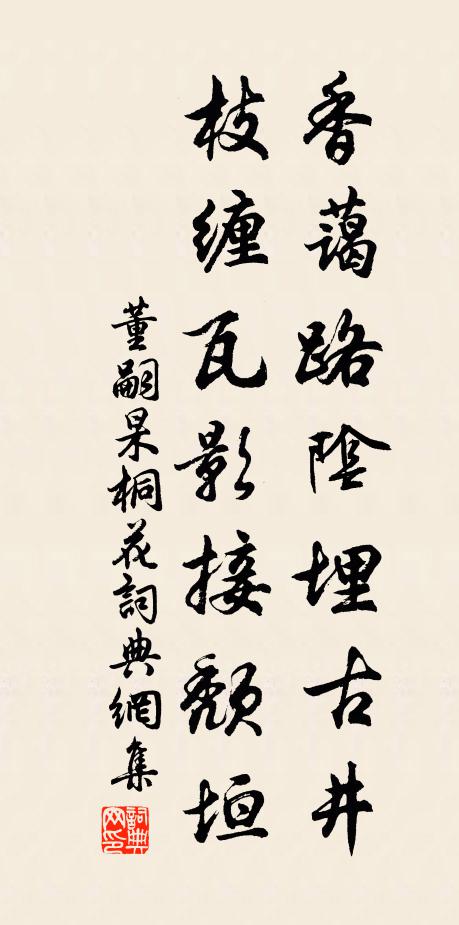 香藹路陰埋古井
枝纏瓦影接頹垣
董嗣杲桐花詞典網集
詞典網印